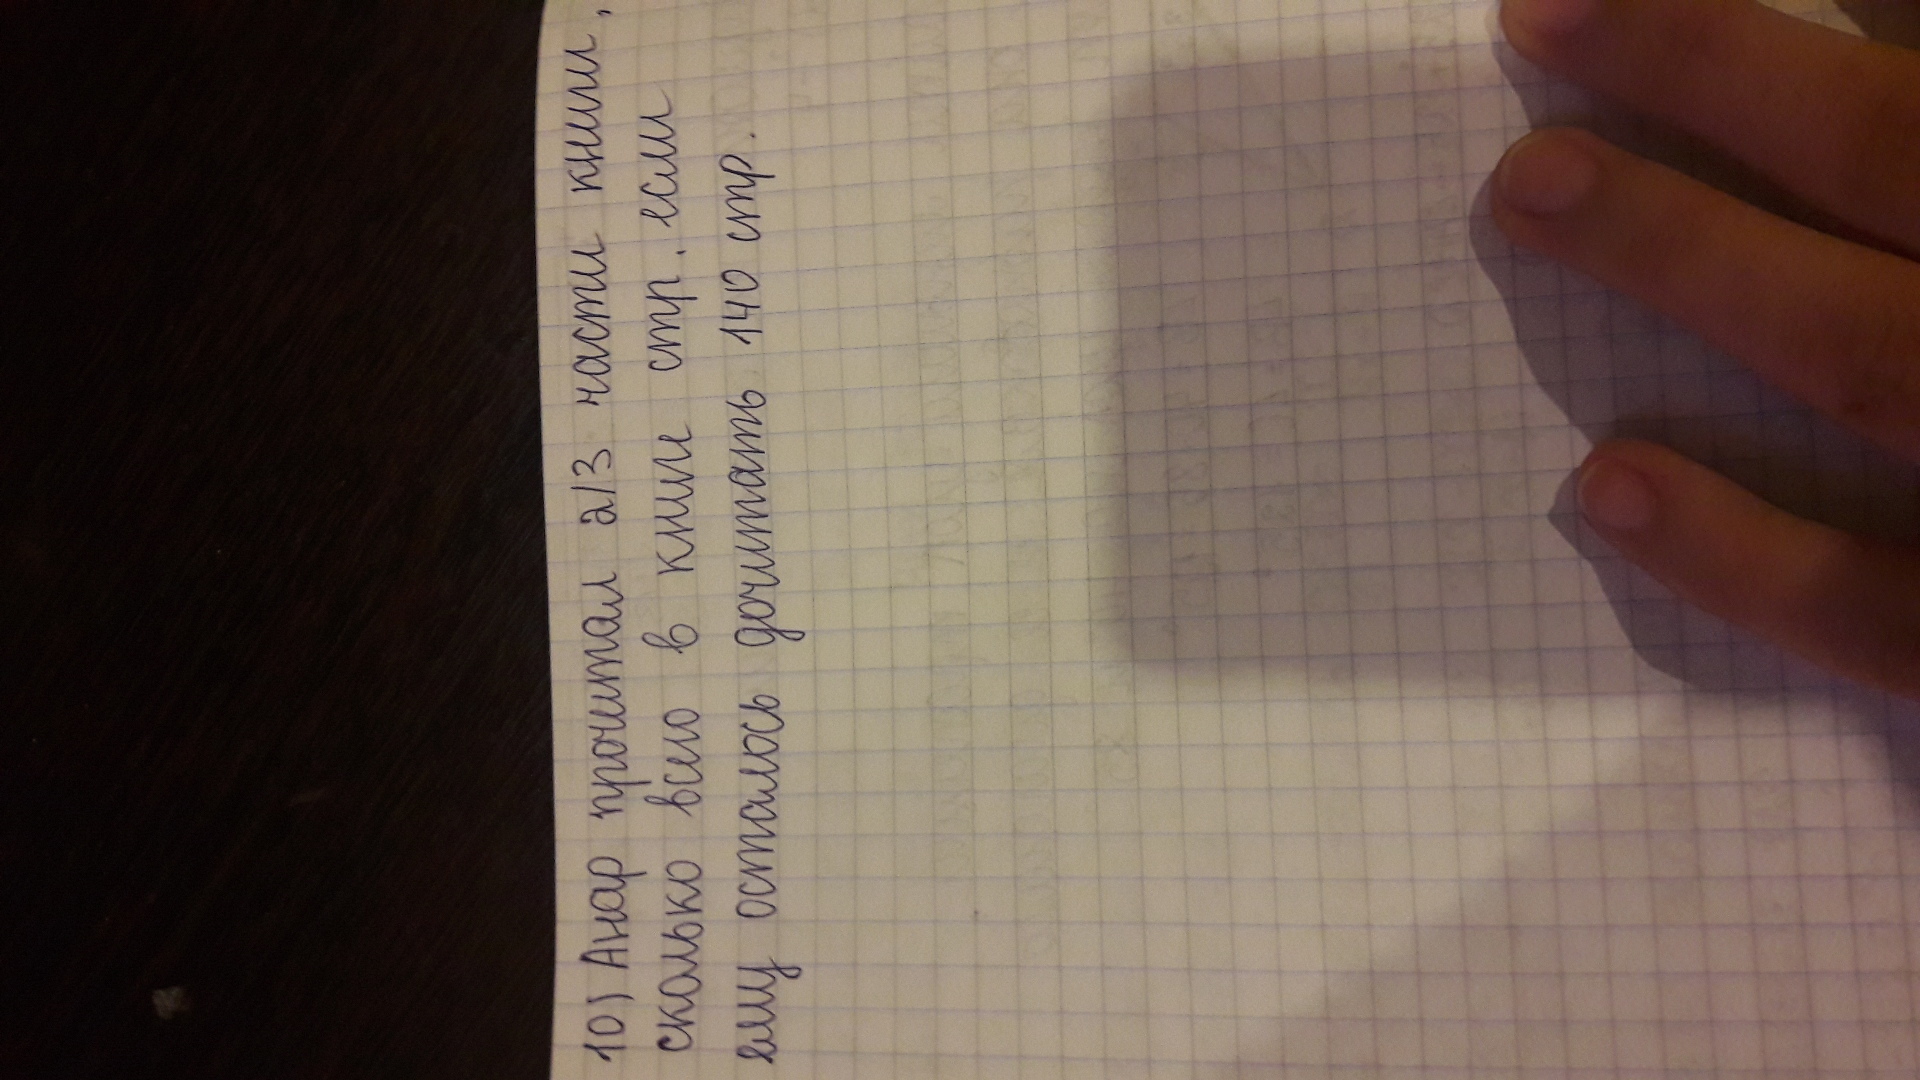 10) Анар прочитал 2/3 части книги,
сколько всего в книги стр. если
ему осталось дочитать 140 стр.